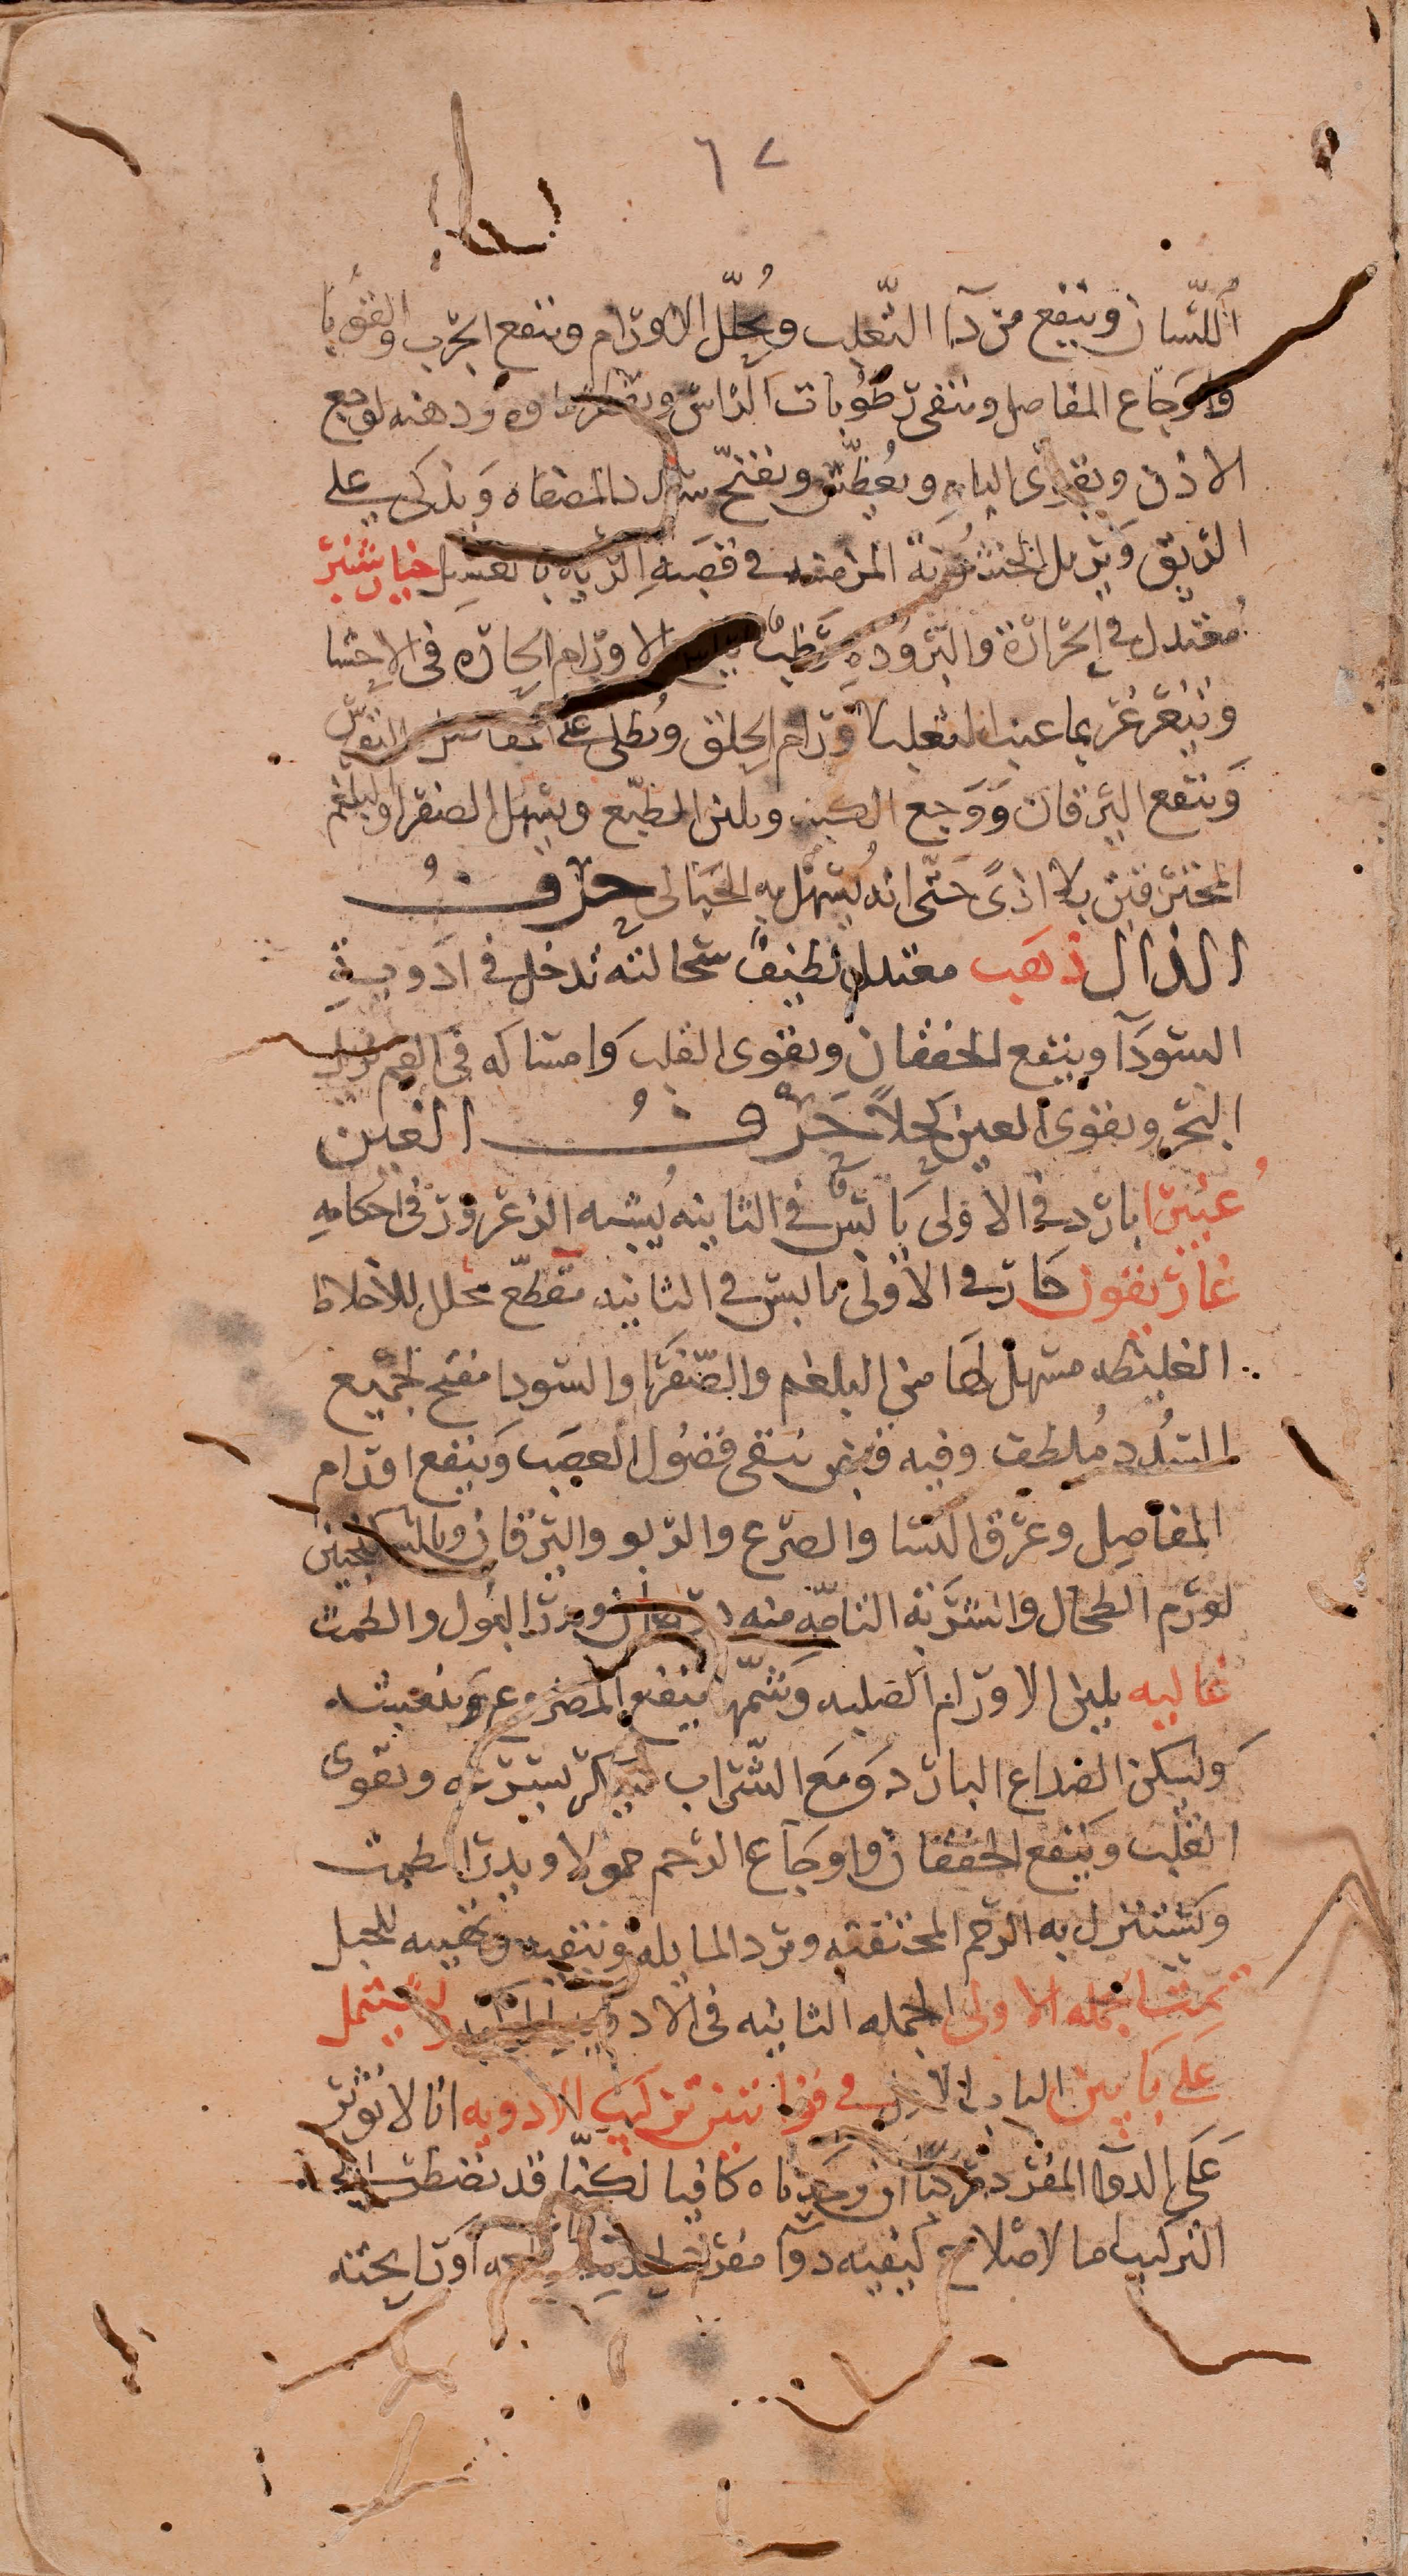 ٦٧
اللسان وينفع من دآء الثعلب ويُحلّل الاورام وينفع الجرب والقوبا
واوجاع المفاصل وينقى رطوبات الرّاس ودهنه لوجع
الاذن ويقوى الباه ويُعطّش ويفتح سدد المصفاه ويذكى على
الريق ويزيل الخشونة المزمنه فى قصبة الريه بالعسل خيار شنبر
مُعتدل فى الحرارة والبرودة رطب الاورام الحاره فى الاحشا
ويتغرغر بما عنب الثعلب لاورام الحلق ويُطلى على النقرس
وينفع اليرقان ووجع الكبد ويلين الطبع ويسهل الصفرا والبلغم
المحترقين بلا اذىً حتّى انه يُسهل به الحبالى حرف
الذال ذهب معتدل لطيف سحالته تدخل فى ادوية
السودآ وينفع الخفقان ويقوى القلب وامساكه فى الفم يزيل
البخر ويقوى العين كحلاً حَرْفُ الغين
غُبيرا بارد فى الاولى يابسٌ فى الثانيه يُشبه الزعرور فى احكامه
غاريقون حار فى الاولى يابس فى الثانيه مقطّع محلل للاخلاط
الغليظه مسهل لها من البلغم والصّفرا والسودا مفتح لجميع
السُدد مُلطف وفيه قبض ينقى فضول العصب وينفع اورام
المفاصل وعرق النسا والصرع والربو واليرقان وبالسكنجبين
لورم الطحال والشربة التامّه منه درهمان ويدر البول والطمث
غاليه يلين الاورام الصلبه وشمّها ينفع المصروع وينعشه
ويسكن الصداع البارد ومع الشراب يسكر بسرعه ويقوى
القلب وينفع الخفقان واوجاع الرحم حمولا ويدر الطمث
ويستنزل به الرحم المختنقه ويرد المايله وينقيه ويهيه للحبل
تمت الجمله الاولى الجمله الثانيه فى الادويه المركبه ويشتمل
على بابين الباب الاول فى قوانين تركيب الادويه انا لا نوثر
على الدوآ المفرد مركبا ان وجدناه كافيا لكنّا قد نضطر الى
التركيب اما لاصلاح كيفيه دوآ مفرد طعمه او رايحته